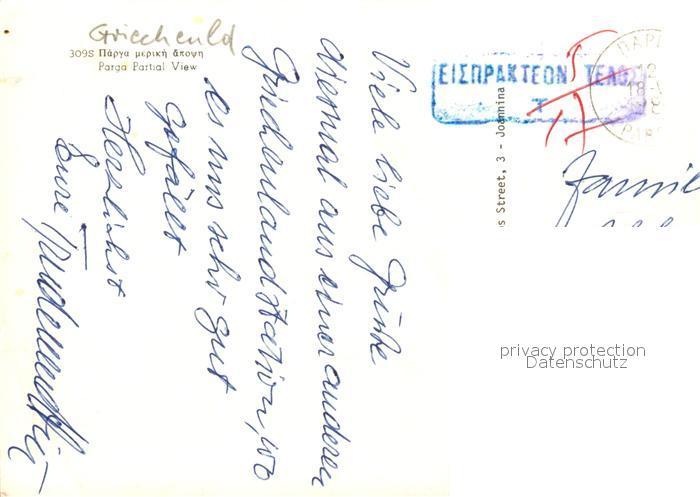 Griechenld
309S Πάργα μερική άποψη
Parga Partial View
Viele liebe Grüße
diesmal aus einer anderen
Griechenlandstation, wo
es uns sehr gut
gefällt
Herzlichst
Eure
ΕΙΣΠΡΑΚΤΕΟΝ ΤΕΛΟΣ
T
ΠΑΡΓ
s Street, 3 - Joannina
Famil
privacy protection
Datenschutz